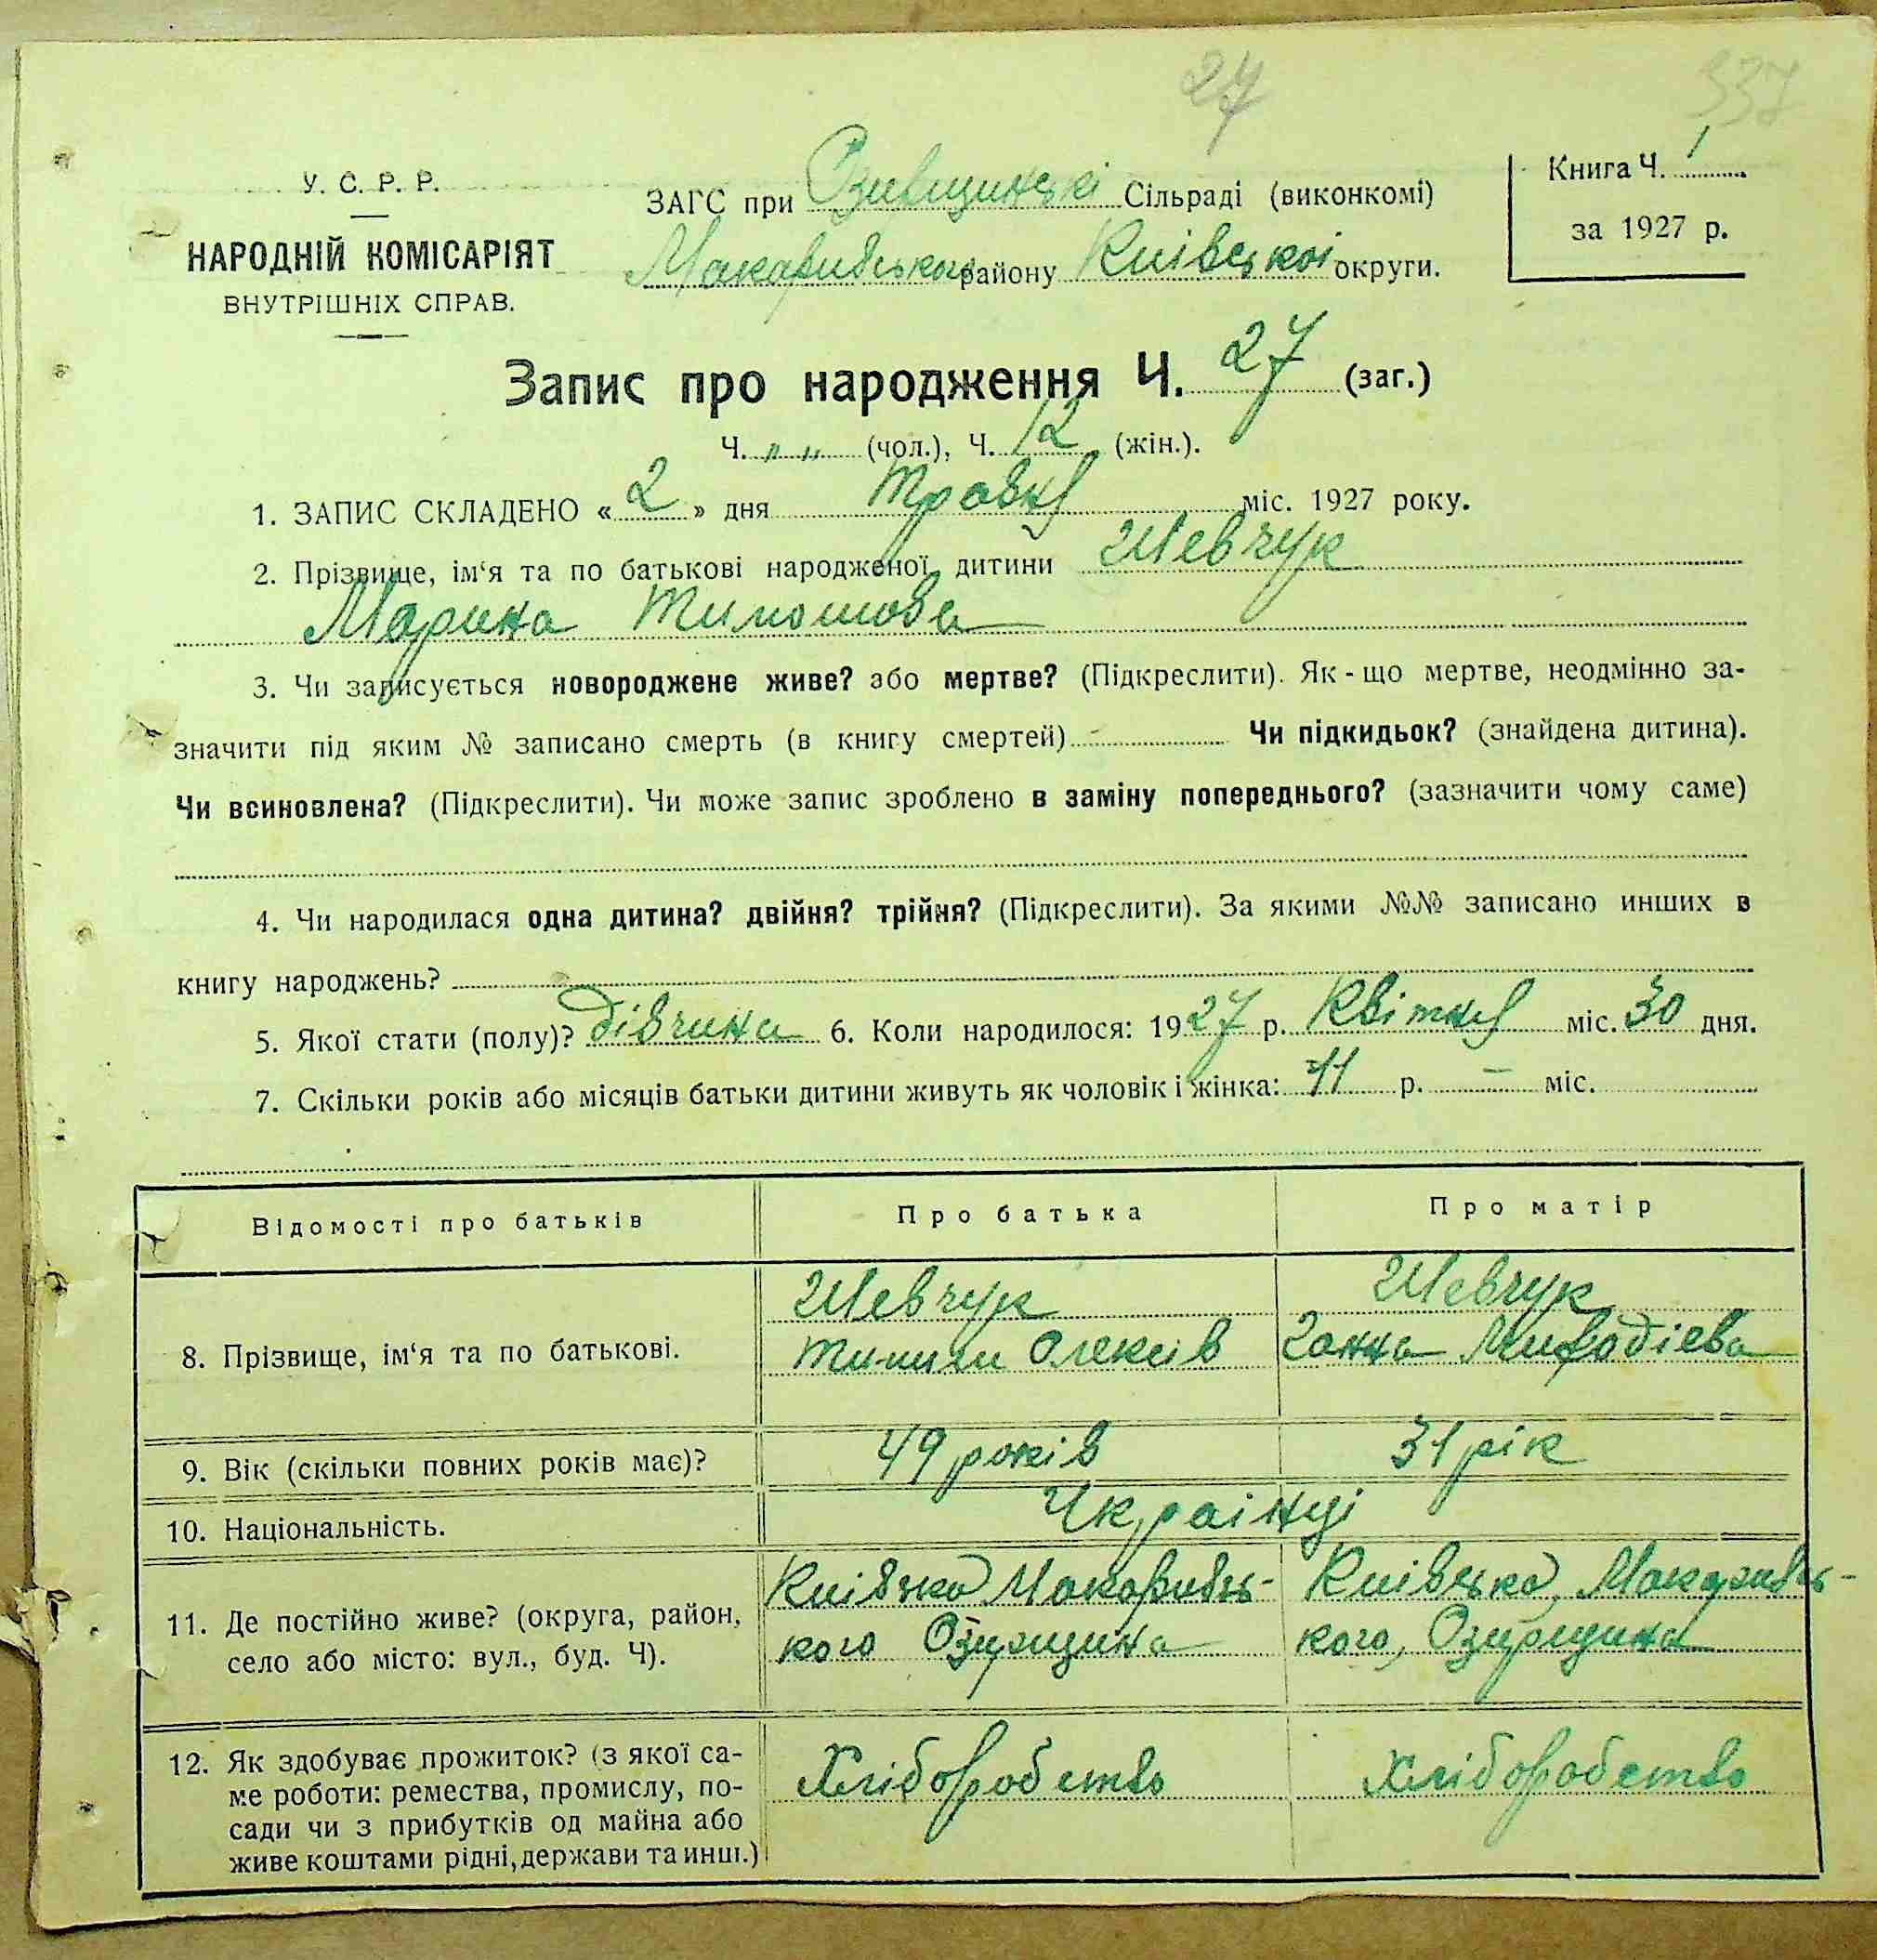 27 337
У. С. Р. Р.
НАРОДНІЙ КОМІСАРІЯТ
ВНУТРІШНІХ СПРАВ.
ЗАГС при Сільраді (виконкомі)
Макарівського району Київської округи.
Книга Ч. 1
за 1927 р.
Запис про народження Ч. 27 (заг.)
Ч. „ „ (чол.), Ч. 12 (жін.).
1. ЗАПИС СКЛАДЕНО « 2 » дня Травня міс. 1927 року.
2. Прізвище, ім‘я та по батькові народженої дитини Шевчук
Марина Тимошова
3. Чи записується новороджене живе? або мертве? (Підкреслити). Як-що мертве, неодмінно за-
значити під яким № записано смерть (в книгу смертей) - Чи підкидьок? (знайдена дитина).
Чи всиновлена? (Підкреслити). Чи може запис зроблено в заміну попереднього? (зазначити чому саме)
4. Чи народилася одна дитина? двійня? трійня? (Підкреслити). За якими №№ записано инших в
книгу народжень?
5. Якої стати (полу)? дівчина 6. Коли народилося: 1927 р. Квітня міс. 30 дня.
7. Скільки років або місяців батьки дитини живуть як чоловік і жінка: 11 р. — міс.
Відомості про батьків Про батька Про матір
8. Прізвище, ім‘я та по батькові.
Шевчук
Тимиш Олексів
Шевчук
Ганна Мифодієва
9. Вік (скільки повних років має)? 49 років 31 рік
10. Національність. Українці
11. Де постійно живе? (округа, район,
село або місто: вул., буд. Ч).
Київська Макарівсь-
кого
Київська, Макарівсь-
кого,
12. Як здобуває прожиток? (з якої са-
ме роботи: ремества, промислу, по-
сади чи з прибутків од майна або
живе коштами рідні, держави та инш.)
Хліборобство
Хліборобство